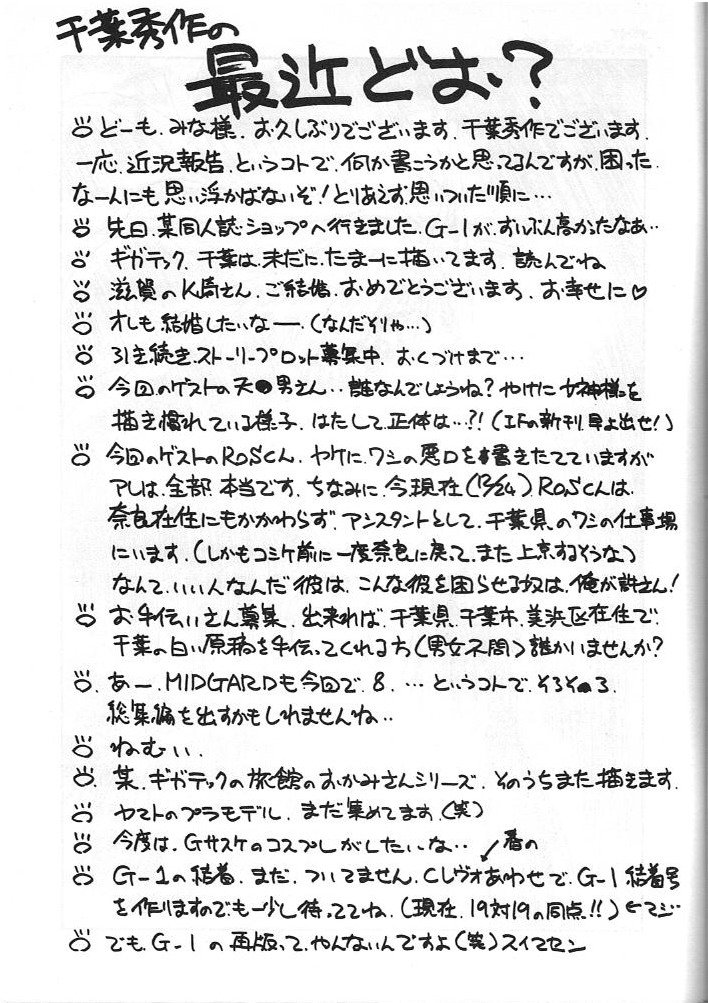 千葉秀作の
最近どお？
どーも、みな様、お久しぶりでございます、千葉秀作でございます、
一応、近況報告、というコトで、何か書こうかと思ってるんですが、困った、
なーんにも思い浮かばないぞ！とりあえず思いついた順に…
先日、某同人誌ショップへ行きました、G-1が、ずいぶん高かったなあ…
ギガテック、千葉は、未だに、たまーに描いてます、読んでね
滋賀のK崎さん、ご結婚、おめでとうございます、お幸せに♡
オレも結婚したいなー、（なんだそりゃ…）
引き続き、ストーリープロット募集中、おくづけまで…
今回のゲストの天●男さん‥誰なんでしょうね？やけに女神様を
描き慣れている様子、はたして、正体は…?!（IFの新刊、早よ出せ！）
今回のゲストのROSCん、ヤケに、ワシの悪口を書きたてていますが
アレは、全部、本当です、ちなみに、今現在（12/24）、ROSCんは、
奈良在住にもかかわらず、アシスタントとして、千葉県、のワシの仕事場
にいます、（しかもコミケ前に一度奈良に戻って、また上京するそうな）
なんて、いい人なんだ彼は、こんな彼を困らせる奴は、俺が許さん！
お手伝いさん募集、出来れば、千葉県、千葉市、美浜区在住で、
千葉の白い原稿を手伝ってくれる方（男女不問）誰かいませんか？
あー、MIDGARDも今回で、8、…というコトで、そろそ●ろ、
総集編を出すかもしれませんね‥
ねむい、
某、ギガテックの旅館のおかみさんシリーズ、そのうちまた描きます、
ヤマトのプラモデル、まだ集めてます、（笑）
今度は、Gサスケのコスプレがしたいな‥
春の
G-1の結着、まだ、ついてません、Cレヴォあわせで、G-1結着号
を作りますのでも一少し待っててね、（現在、19対19の同点!!）←マジ
でも、G-1の再版って、やんないんですよ（笑）スイマセン